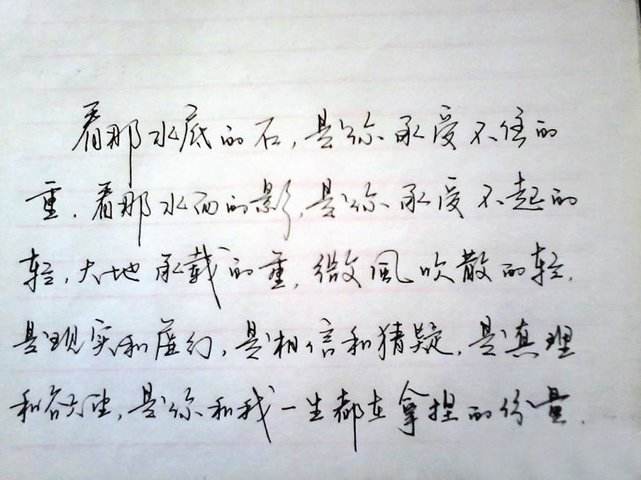 看那水底的石，是你承受不住的
重．看那水面的影，是你承受不起的
轻，大地承载的重，微風吹散的轻．
是现实和虚幻，是相信和猜疑，是真理
和欲望，是你和我一生都在拿捏的份量．